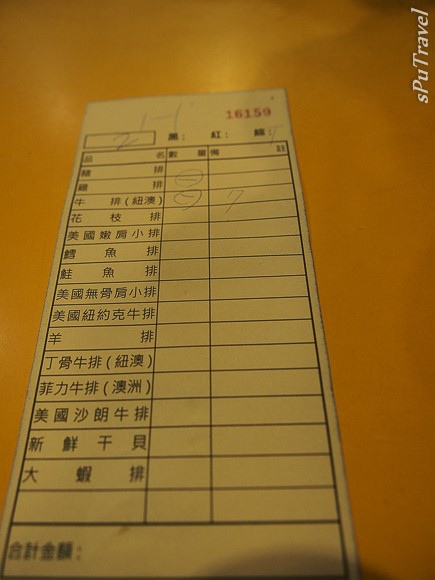 sPuTravel
16159
2 黑: 紅: 鐵:
品名 數量 備註
豬排
雞排 一
牛排(紐澳) 一 7
花枝排
美國嫩肩小排
鱈魚排
鮭魚排
美國無骨肩小排
美國紐約克牛排
羊排
丁骨牛排(紐澳)
菲力牛排(澳洲)
美國沙朗牛排
新鮮干貝
大蝦排
合計金額: